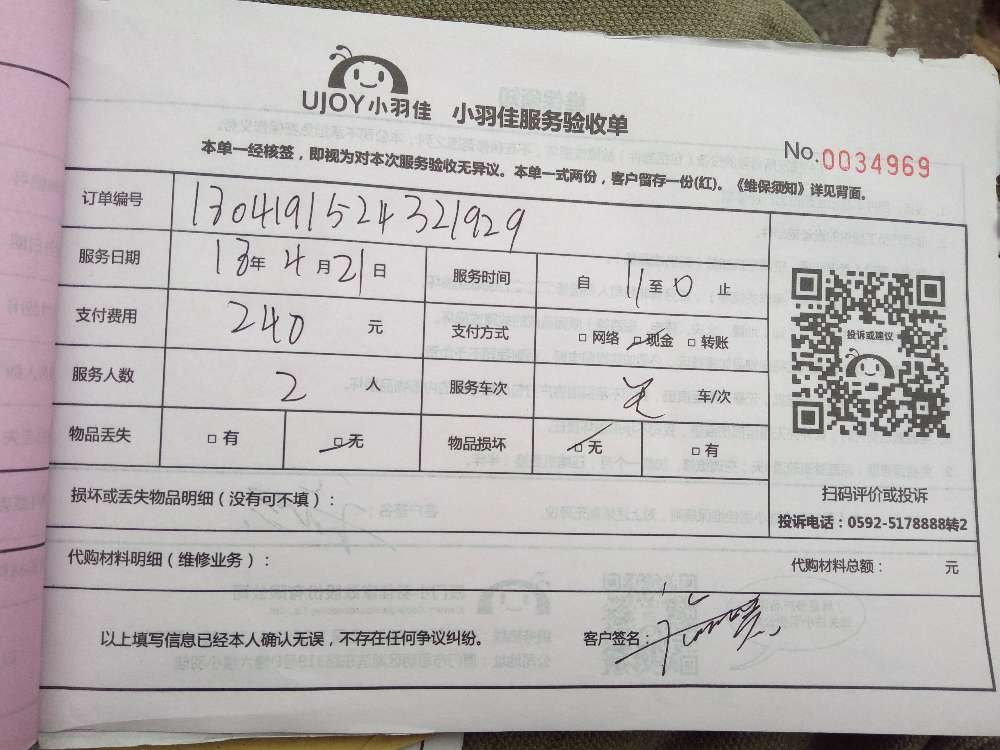 UJOY小羽佳 小羽佳服务验收单
No.0034969
本单一经核签，即视为对本次服务验收无异议。本单一式两份，客户留存一份(红)。《维保须知》详见背面。
订单编号 1304191524321929
服务日期 13年4月21日 服务时间 自 11 至 0 止
支付费用 240 元 支付方式 □ 网络 □ 现金 □ 转账
服务人数 2 人 服务车次 车/次
物品丢失 □ 有 □ 无 物品损坏 □ 无 □ 有
投诉或建议
扫码评价或投诉
投诉电话：0592-5178888转2
损坏或丢失物品明细（没有可不填）：
代购材料明细（维修业务）： 代购材料总额： 元
以上填写信息已经本人确认无误，不存在任何争议纠纷。 客户签名：